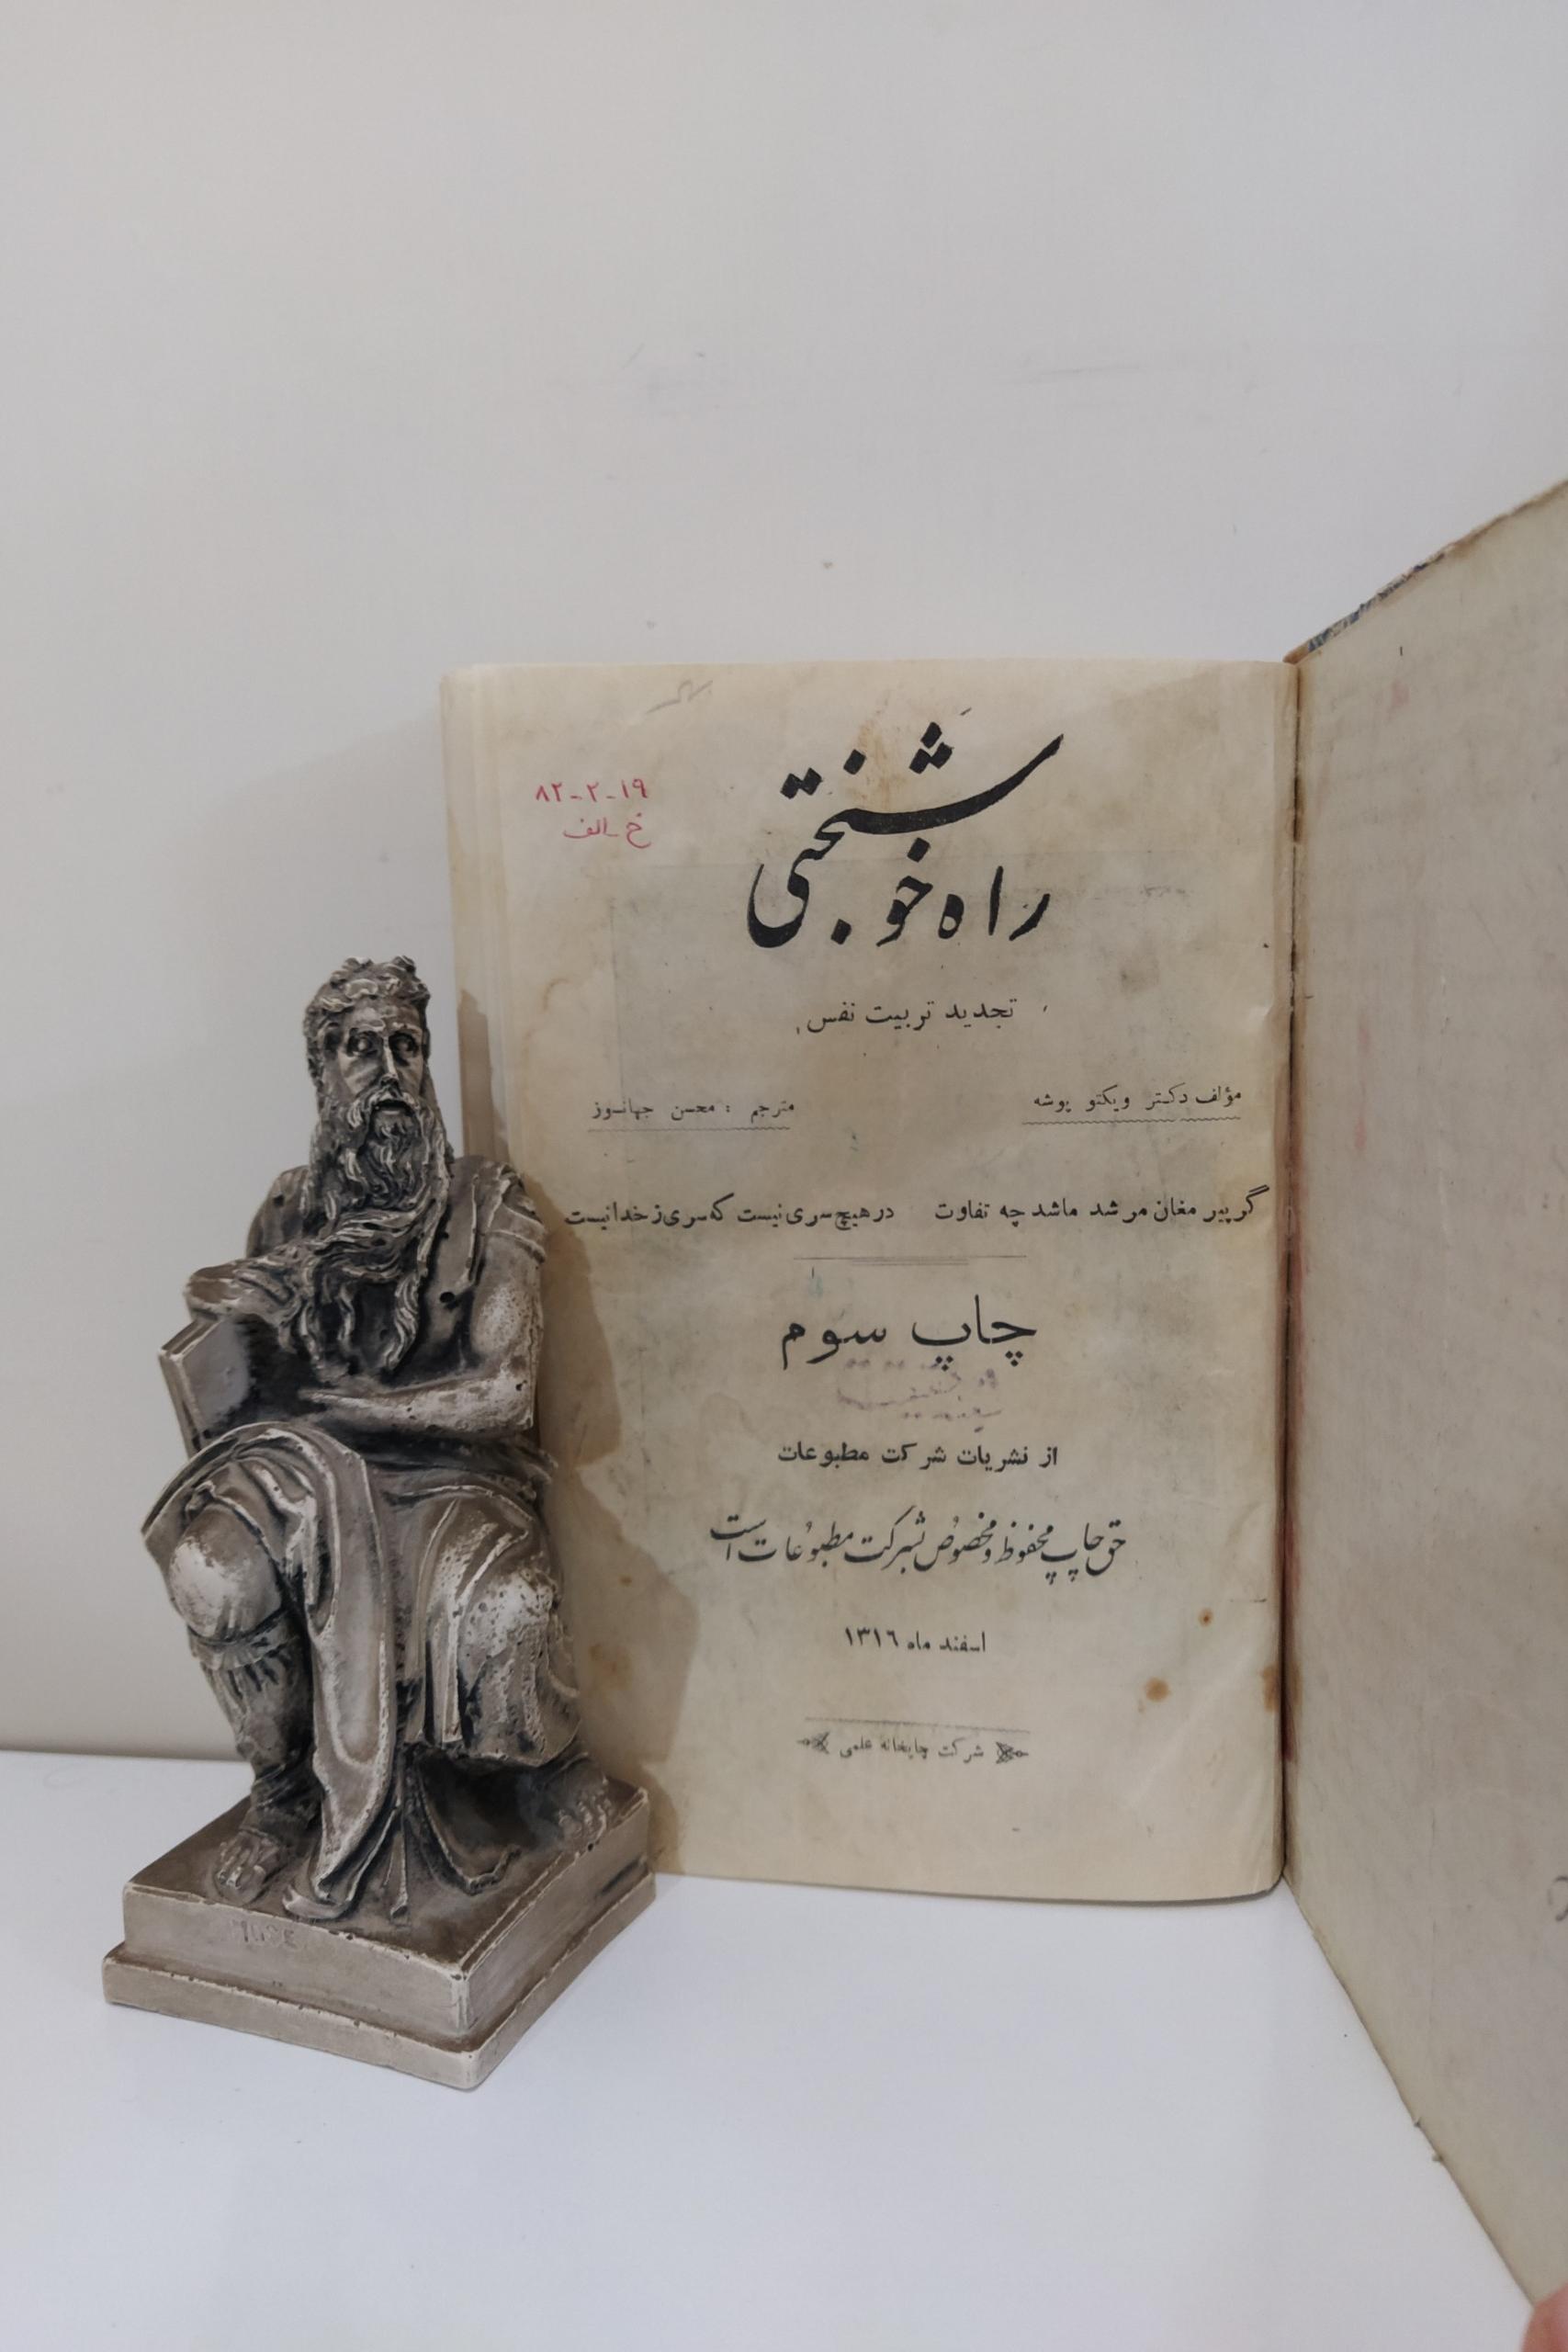 راه خوشبختی
۱۹-۲-۸۲
خ-الف
تجدید تربیت نفس
مؤلف دکتر ویکتو پوشه
مترجم : محسن جهانسوز
گر پیر مغان مرشد ماشد چه تفاوت در هیچ سری نیست که سری ز خدا نیست
چاپ سوم
از نشریات شرکت مطبوعات
حق چاپ محفوظ و مخصوص بشرکت مطبوعات است
اسفند ماه ۱۳۱۶
شرکت چاپخانه علمی
MOSE